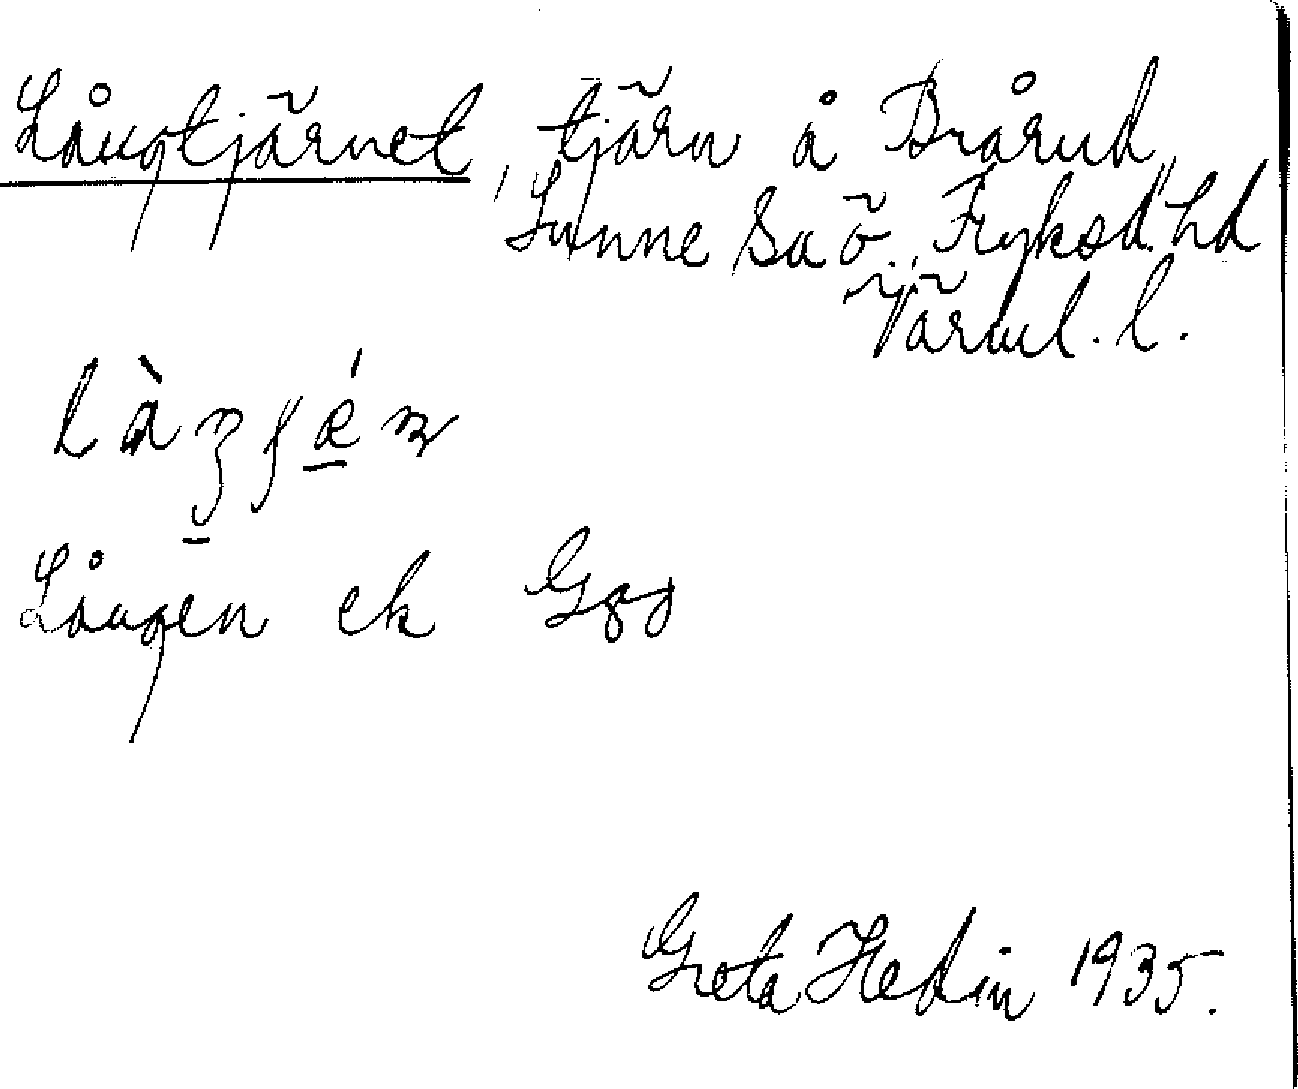 Långtjärnet, tjärn å Brårud,
Sunne sn ö. Fryksd. hd
Värml. l.
Lången ek G88
Greta Hedin 1935.